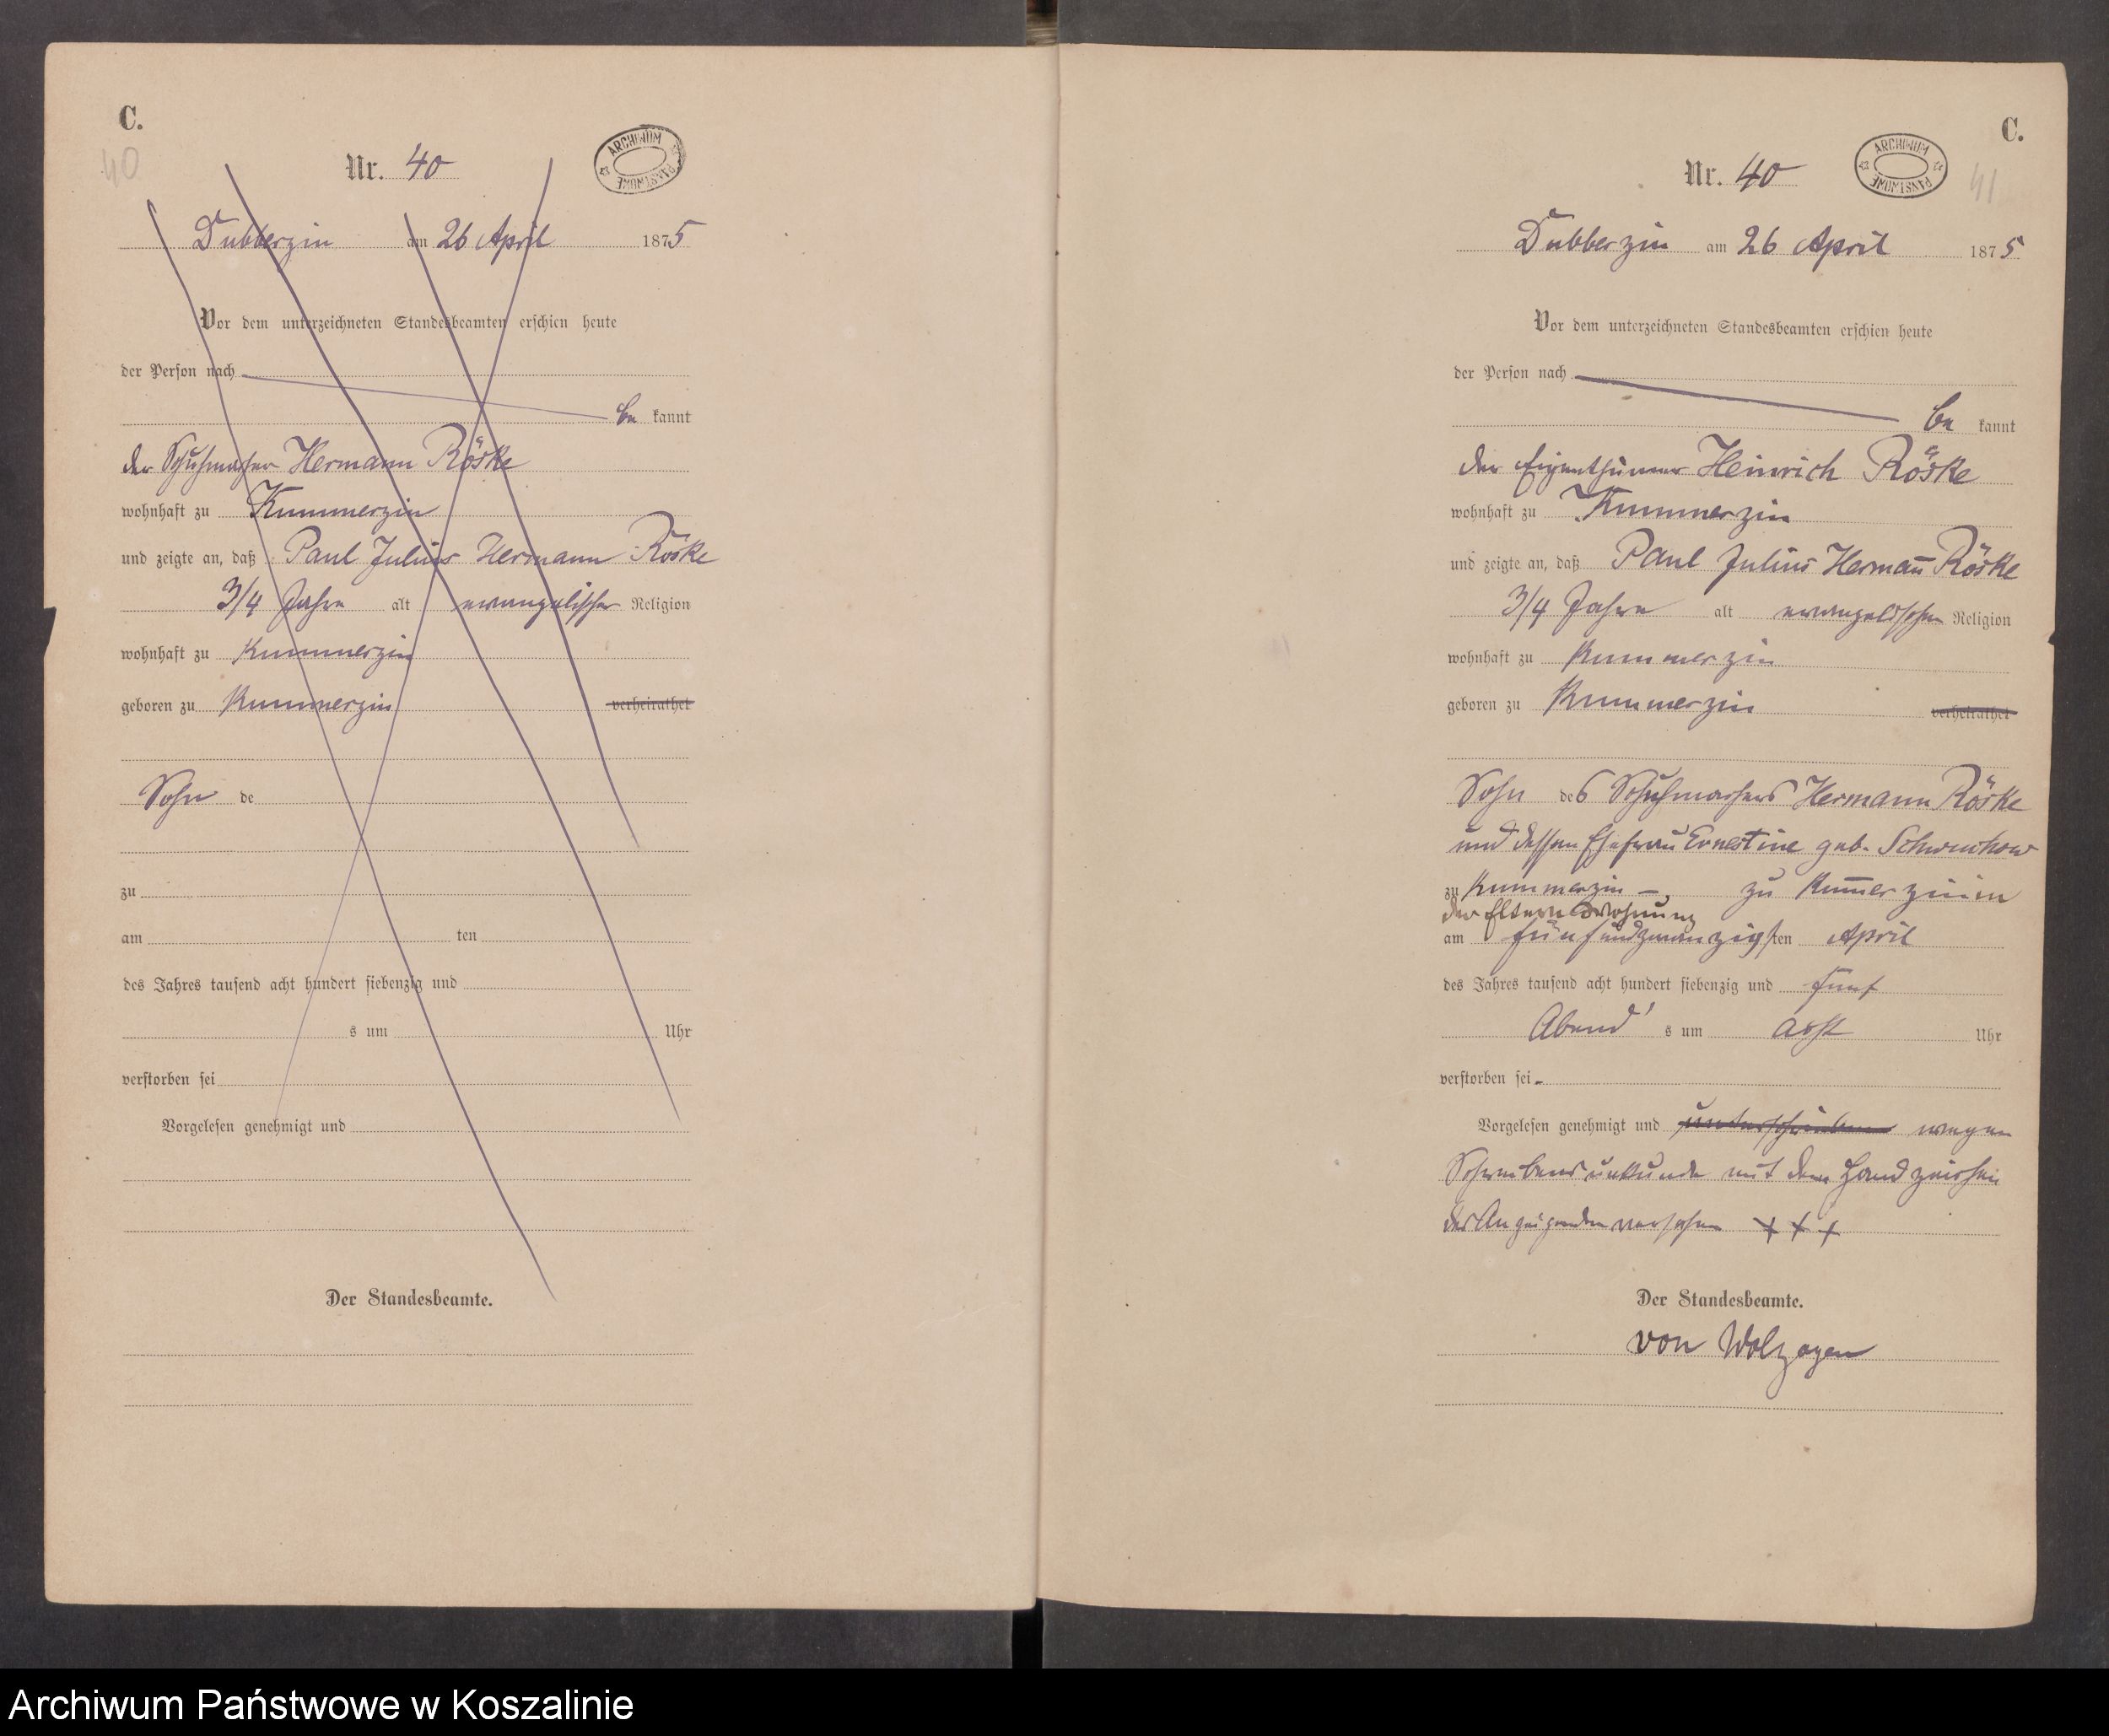 C.
40
Nr. 40
ARCHIWUM PAŃSTWOWE
Dubberzin am 26 April 1875
Vor dem unterzeichneten Standesbeamten erschien heute
der Person nach
be kannt
der Schuhmacher Hermann Röske
wohnhaft zu Kummerzin
und zeigte an, daß Paul Julius Hermann Röske
3/4 Jahre alt evangelischer Religion
wohnhaft zu Kummerzin
geboren zu Kummerzin verheirathet
Sohn de
zu
am ten
des Jahres tausend acht hundert siebenzig und
s um Uhr
verstorben sei
Vorgelesen genehmigt und
Der Standesbeamte.
C.
41
Nr. 40
ARCHIWUM PAŃSTWOWE
Dubberzin am 26 April 1875
Vor dem unterzeichneten Standesbeamten erschien heute
der Person nach
be kannt
der Eigenthümer Heinrich Röske
wohnhaft zu Kummerzin
und zeigte an, daß Paul Julius Herman̄ Röske
3/4 Jahre alt evangelischer Religion
wohnhaft zu Kummerzin
geboren zu Kummerzin verheirathet
Sohn des Schuhmachers Hermann Röske
und dessen Ehefrau Ernestine geb.
zu Kummerzin – zu Kum̄erzin in
der Eltern Wohnung
am fünfundzwanzigsten April
des Jahres tausend acht hundert siebenzig und fünf
Abend's um acht Uhr
verstorben sei
Vorgelesen genehmigt und unterschrieben wegen
Schreibensunkunde mit dem Handzeichen
des Anzeigenden versehen + + +
Der Standesbeamte.
von Wolzogen
Archiwum Państwowe w Koszalinie